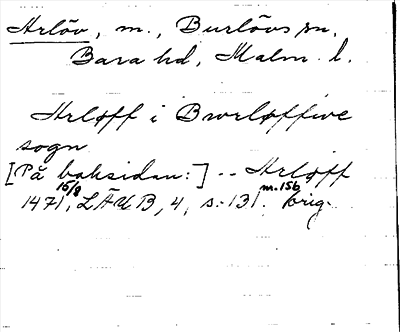 Arlöv, m., Burlövs sn.
Bara hd, Malm. l.
Arløff i Bwrløffwe
sogn
[På baksidan:] -- Arløff
1471 15/8, LÄUB, 4, s. 131. m.156 orig.